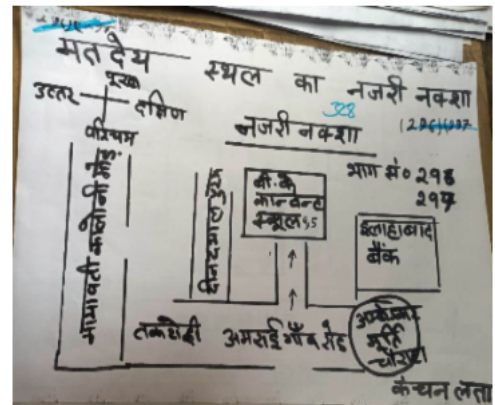 मतदेय स्थल का नजरी नक्शा
पूरब
उत्तर दक्षिण
पश्चिम
328
नजरी नक्शा
भाग सं० 296
297
मायावती कालोनी रोड
दीनदयालपुरम
बी.के
कान्वेन्ट
स्कूल
इलाहाबाद
बैंक
तकरोही
अमराई गाँव रोड
अम्बेडकर
मूर्ति
चौराहा
कंचन लता